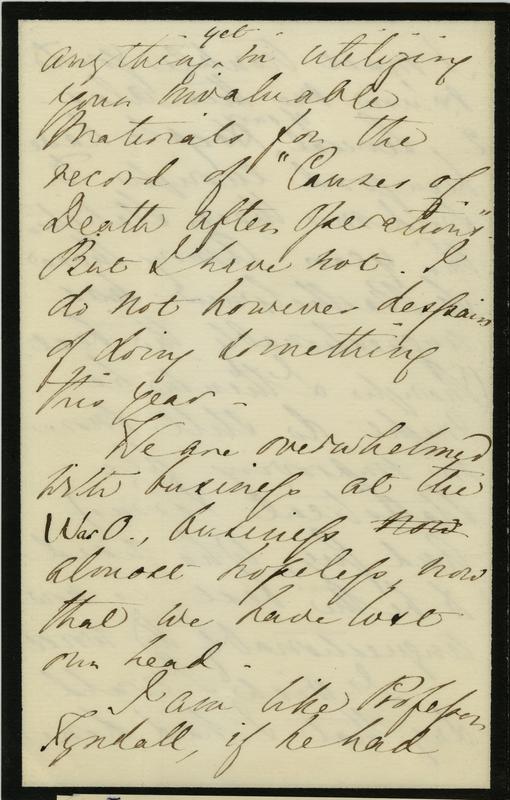 anything yet in utilizing
your invaluable
Materials for the
record of "Causes of
Death after Operations".
But I have not. I
do not however despair
of doing something
this year -
We are overwhelmed
with business at the
War O., business now
almost hopeless, now
that we have lost
our head -
I am like Professor
Tyndall, if he had